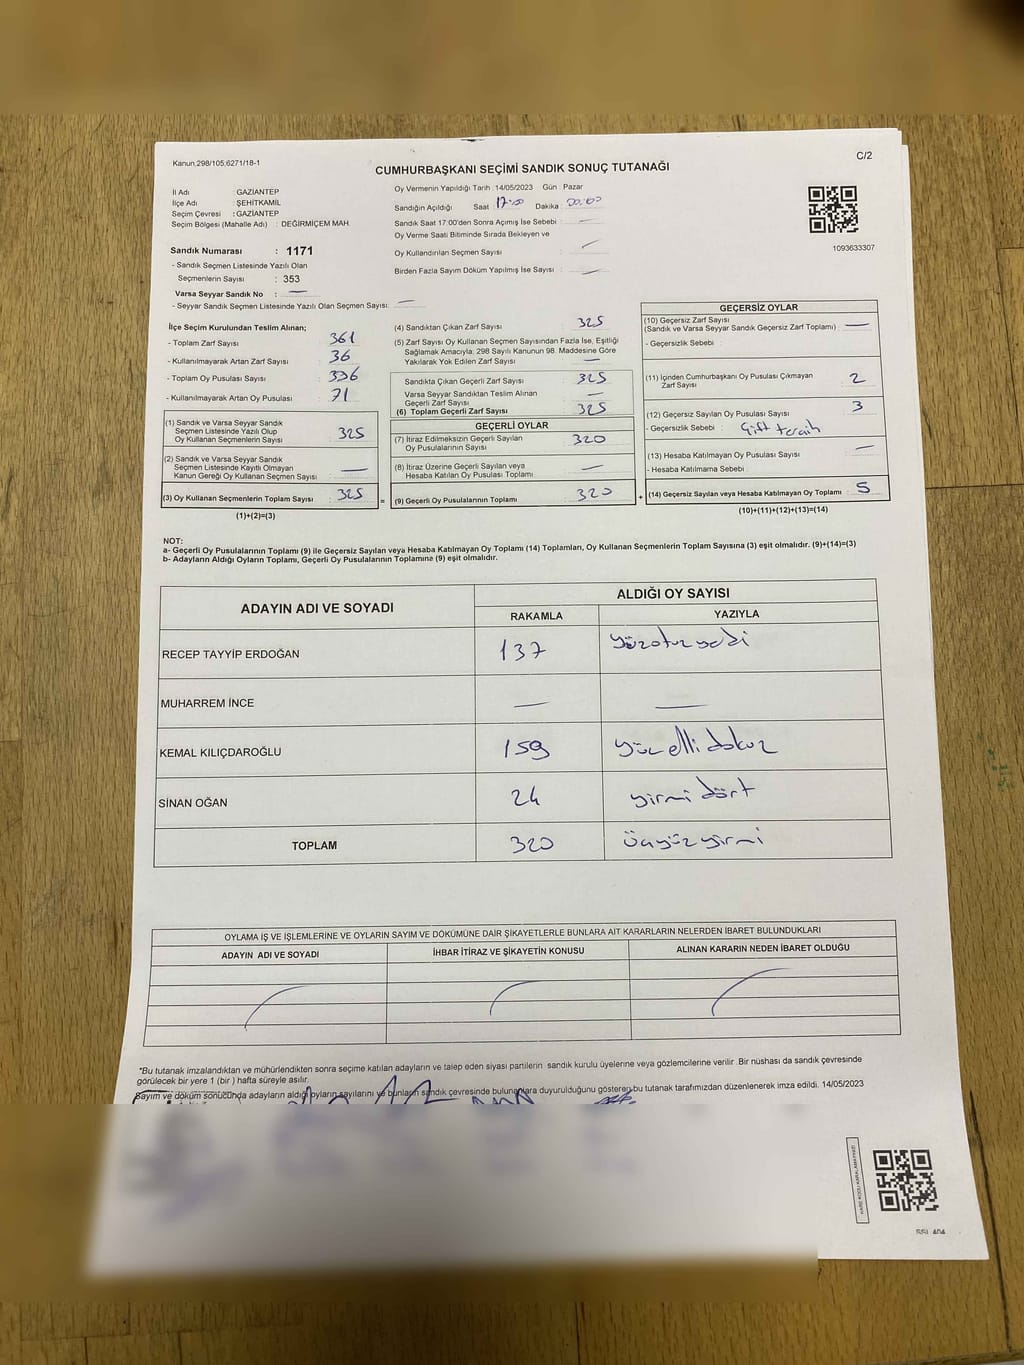 Kanun,298/105,6271/18-1
C/2
CUMHURBAŞKANI SEÇİMİ SANDIK SONUÇ TUTANAĞI
İl Adı : GAZİANTEP
İlçe Adı : ŞEHİTKAMİL
Seçim Çevresi : GAZİANTEP
Seçim Bölgesi (Mahalle Adı) : DEĞİRMİÇEM MAH.
Oy Vermenin Yapıldığı Tarih :14/05/2023 Gün : Pazar
Sandığın Açıldığı Saat 17:00 Dakika 00:00
Sandık Saat 17.00'den Sonra Açımış İse Sebebi : —
Oy Verme Saati Bitiminde Sırada Bekleyen ve
Oy Kullandırılan Seçmen Sayısı : —
Birden Fazla Sayım Döküm Yapılmış İse Sayısı : —
1093633307
Sandık Numarası : 1171
- Sandık Seçmen Listesinde Yazılı Olan
Seçmenlerin Sayısı : 353
Varsa Seyyar Sandık No : —
- Seyyar Sandık Seçmen Listesinde Yazılı Olan Seçmen Sayısı: —
İlçe Seçim Kurulundan Teslim Alınan;
- Toplam Zarf Sayısı : 361
- Kullanılmayarak Artan Zarf Sayısı : 36
- Toplam Oy Pusulası Sayısı : 396
- Kullanılmayarak Artan Oy Pusulası : 71
(1) Sandık ve Varsa Seyyar Sandık
Seçmen Listesinde Yazılı Olup
Oy Kullanan Seçmenlerin Sayısı : 325
(2) Sandık ve Varsa Seyyar Sandık
Seçmen Listesinde Kayıtlı Olmayan
Kanun Gereği Oy Kullanan Seçmen Sayısı : —
(3) Oy Kullanan Seçmenlerin Toplam Sayısı : 325 =
(1)+(2)=(3)
(4) Sandıktan Çıkan Zarf Sayısı : 325
(5) Zarf Sayısı Oy Kullanan Seçmen Sayısından Fazla İse, Eşitliği
Sağlamak Amacıyla; 298 Sayılı Kanunun 98. Maddesine Göre
Yakılarak Yok Edilen Zarf Sayısı : —
Sandıkta Çıkan Geçerli Zarf Sayısı : 325
Varsa Seyyar Sandıktan Teslim Alınan
Geçerli Zarf Sayısı : —
(6) Toplam Geçerli Zarf Sayısı : 325
GEÇERLİ OYLAR
(7) İtiraz Edilmeksizin Geçerli Sayılan
Oy Pusulalarının Sayısı : 320
(8) İtiraz Üzerine Geçerli Sayılan veya
Hesaba Katılan Oy Pusulası Toplamı : —
(9) Geçerli Oy Pusulalarının Toplamı : 320 +
GEÇERSİZ OYLAR
(10) Geçersiz Zarf Sayısı
(Sandık ve Varsa Seyyar Sandık Geçersiz Zarf Toplamı) : —
- Geçersizlik Sebebi :
(11) İçinden Cumhurbaşkanı Oy Pusulası Çıkmayan
Zarf Sayısı : 2
(12) Geçersiz Sayılan Oy Pusulası Sayısı : 3
- Geçersizlik Sebebi : Çift tercih
(13) Hesaba Katılmayan Oy Pusulası Sayısı : —
- Hesaba Katılmama Sebebi :
(14) Geçersiz Sayılan veya Hesaba Katılmayan Oy Toplamı : 5
(10)+(11)+(12)+(13)=(14)
NOT:
a- Geçerli Oy Pusulalarının Toplamı (9) ile Geçersiz Sayılan veya Hesaba Katılmayan Oy Toplamı (14) Toplamları, Oy Kullanan Seçmenlerin Toplam Sayısına (3) eşit olmalıdır. (9)+(14)=(3)
b- Adayların Aldığı Oyların Toplamı, Geçerli Oy Pusulalarının Toplamına (9) eşit olmalıdır.
ADAYIN ADI VE SOYADI ALDIĞI OY SAYISI
RAKAMLA YAZIYLA
RECEP TAYYİP ERDOĞAN 137 yüzotuzyedi
MUHARREM İNCE — —
KEMAL KILIÇDAROĞLU 159 yüz elli dokuz
SİNAN OĞAN 24 yirmi dört
TOPLAM 320 üçyüzyirmi
OYLAMA İŞ VE İŞLEMLERİNE VE OYLARIN SAYIM VE DÖKÜMÜNE DAİR ŞİKAYETLERLE BUNLARA AİT KARARLARIN NELERDEN İBARET BULUNDUKLARI
ADAYIN ADI VE SOYADI İHBAR İTİRAZ VE ŞİKAYETİN KONUSU ALINAN KARARIN NEDEN İBARET OLDUĞU
*Bu tutanak imzalandıktan ve mühürlendikten sonra seçime katılan adayların ve talep eden siyasi partilerin sandık kurulu üyelerine veya gözlemcilerine verilir .Bir nüshası da sandık çevresinde
görülecek bir yere 1 (bir ) hafta süreyle asılır.
Sayım ve döküm sonucunda adayların aldığı oyların sayılarını ve bunların sandık çevresinde bulunanlara duyurulduğunu gösteren bu tutanak tarafımızdan düzenlenerek imza edildi. 14/05/2023